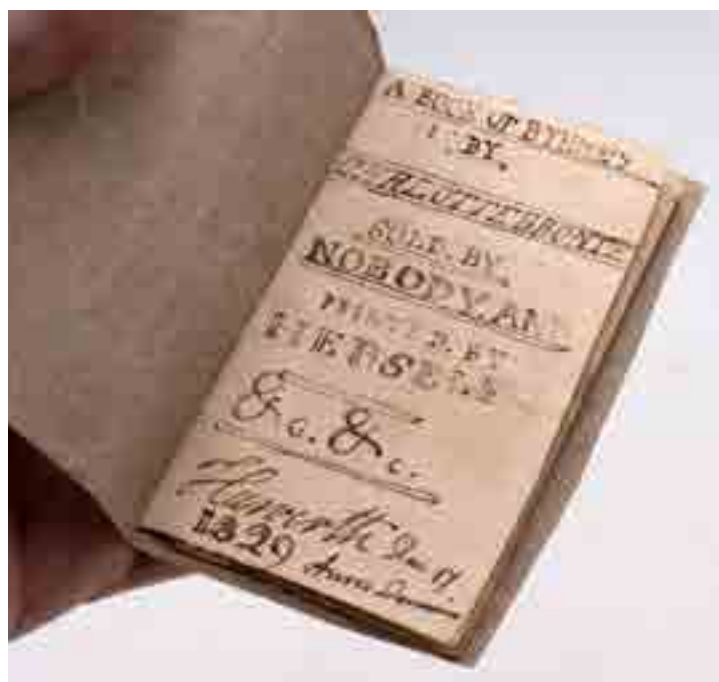 A BOOK OF RYHMES
BY.
CHARLOTTE BRONTE
SOLD. BY.
NOBODY. AND
PRINTED. BY
HERSELF
&c. &c.
Haworth Dec 17.
1829 Anno Dom